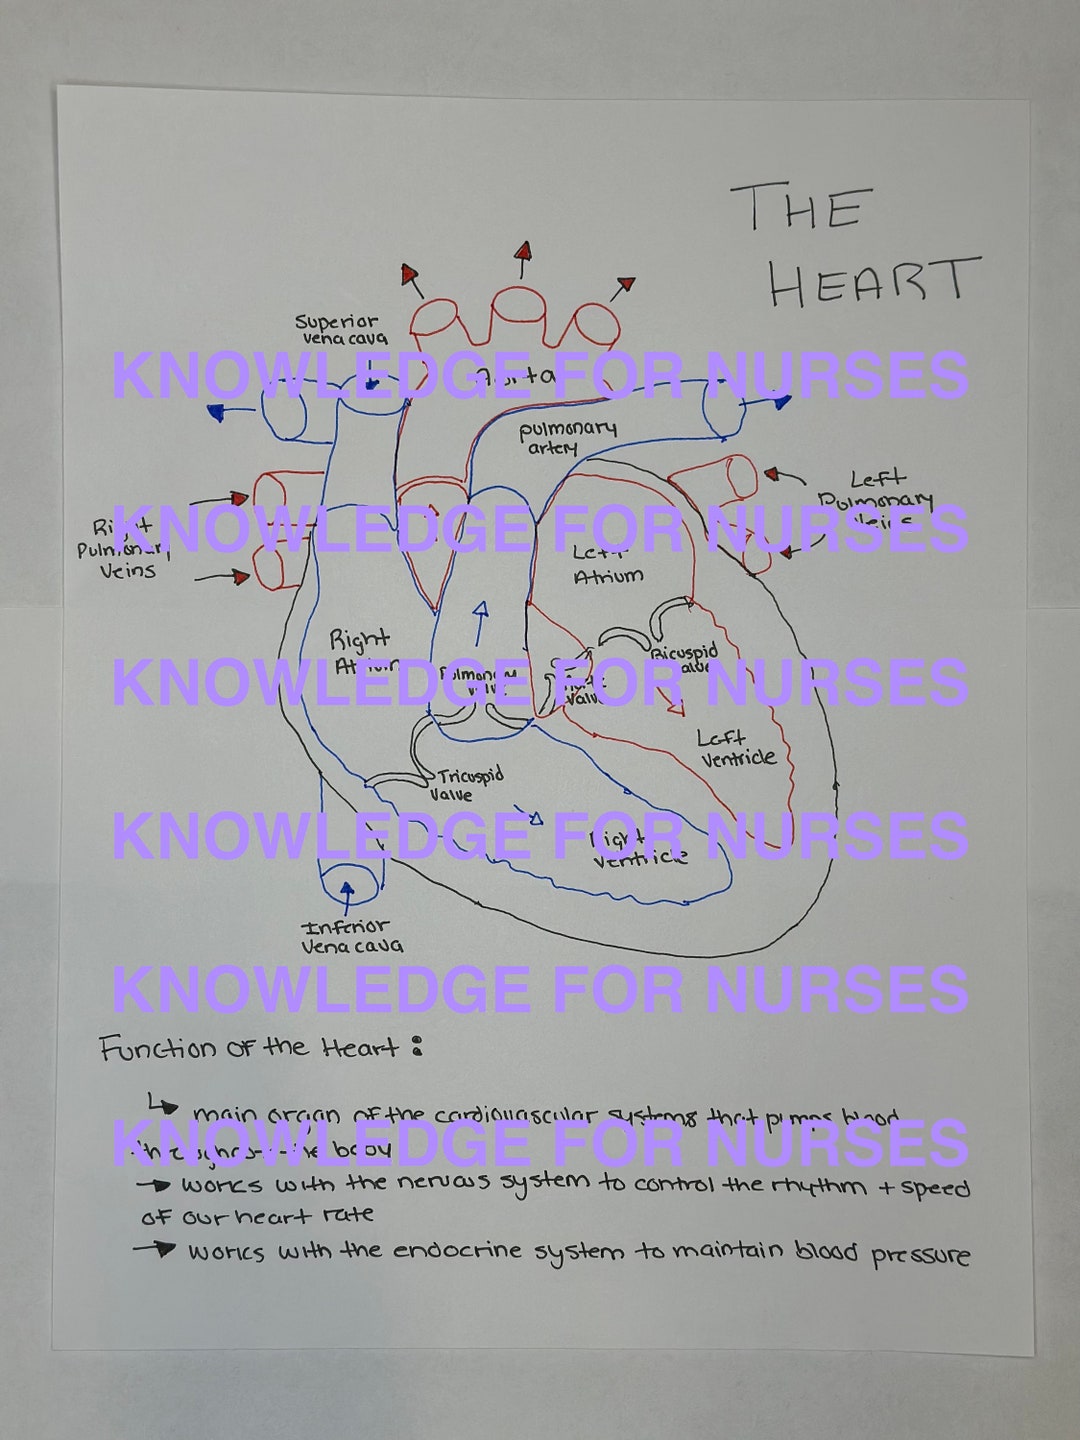 THE
HEART
Superior
vena cava
KNOWLEDGE FOR NURSES
Aorta
pulmonary
artery
Left
Pulmonary
Veins
KNOWLEDGE FOR NURSES
Right
Pulmonary
Veins
Left
Atrium
Right
Atrium
Bicuspid
Valve
KNOWLEDGE FOR NURSES
Pulmonary
Valve
Aortic
Valve
Left
Ventricle
Tricuspid
Valve
KNOWLEDGE FOR NURSES
Right
Ventricle
Inferior
Vena cava
KNOWLEDGE FOR NURSES
Function of the Heart :
main organ of the cardiovascular systems that pumps blood
KNOWLEDGE FOR NURSES
throughout the body
works with the nervous system to control the rhythm + speed
of our heart rate
works with the endocrine system to maintain blood pressure